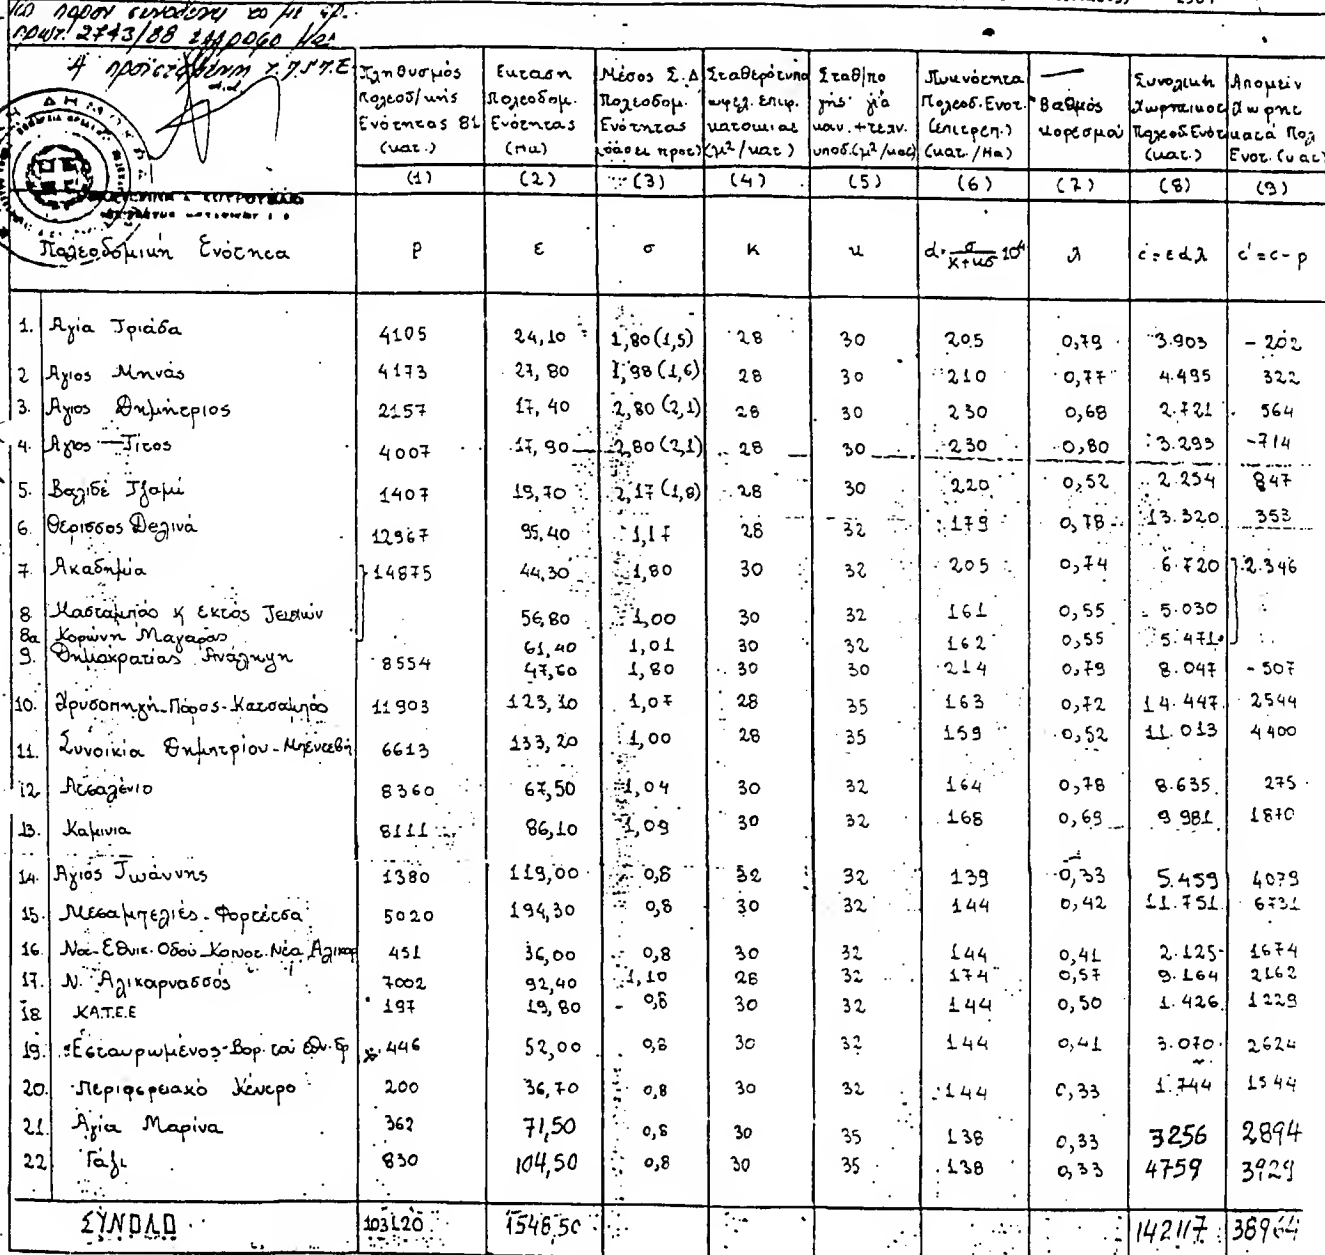 πρωτ. 2743/88 έγγραφό μας
Η προϊσταμένη Τ.Π.Π.Ε
Πληθυσμός Πολεοδ/μικής Ενότητας 81 (κατ.)
Εκταση Πολεοδομ. Ενότητας (Ha)
Μέσος Σ.Δ Πολεοδομ. Ενότητας
Σταθερότυπο ωφελ. επιφ. κατοικίας (μ²/κατ)
Σταθ/πο γής για κοιν.+τεχν. υποδ.(μ²/κατ)
Πυκνότητα Πολεοδ. Ενοτ. (επιτρεπ.) (κατ./Ha)
Βαθμός κορεσμού
Συνολική Χωρητικοτ Πολεοδ Ενότ (κατ.)
Απομειν Χωρητ κατά Πολ Ενοτ. (κατ)
(1) (2) (3) (4) (5) (6) (7) (8) (9)
Πολεοδομική Ενότητα P ε σ K κ d=σ/(K+κσ) 10⁴ λ c=εdλ c'=c-p
1. Αγία Τριάδα 4105 24,10 1,80(1,5) 28 30 205 0,79 3.903 -202
2 Αγιος Μηνάς 4173 27,80 1,98(1,6) 28 30 210 0,77 4.495 322
3. Αγιος Δημήτριος 2157 17,40 2,80(2,1) 28 30 230 0,68 2.721 564
4. Αγιος Τίτος 4007 17,90 2,80(2,1) 28 30 230 0,80 3.293 -714
5. Βαλιδέ Τζαμί 1407 19,70 2,17(1,8) 28 30 220 0,52 2.254 847
6. Θέρισσος Δειλινά 12967 95,40 1,17 28 32 179 0,78 13.320 353
7. Ακαδημία 14875 44,30 1,80 30 32 205 0,74 6.720 2.346
8 Μασταμπάς κ Εκτός Τειχών 56,80 1,00 30 32 161 0,55 5.030
8α Κορώνη Μαγαράς 61,40 1,01 30 32 162 0,55 5.471
9. Δημοκρατίας Ανάληψη 8554 47,60 1,80 30 30 214 0,79 8.047 -507
10. Χρυσοπηγή-Πόρος-Κατσαμπάς 11903 123,10 1,07 28 35 163 0,72 14.447 2544
11. Συνοικία Δημητρίου-Μπεντεβή 6613 133,20 1,00 28 35 159 0,52 11.013 4400
12 Ατσαλένιο 8360 67,50 1,04 30 32 164 0,78 8.635 275
13. Καμινια 8111 86,10 1,09 30 32 168 0,69 9 981 1870
14. Αγιός Ιωάννης 1380 119,00 0,8 32 32 139 0,33 5.459 4079
15. Μεσαμπελιές-Φορτέτσα 5020 194,30 0,8 30 32 144 0,42 11.751 6731
16. Νοτ. Εθνικ. Οδού Κοινοτ. Νέα Αλικαρ 451 36,00 0,8 30 32 144 0,41 2.125 1674
17. Ν. Αλικαρνασσός 7002 92,40 1,10 28 32 174 0,57 9.164 2162
18 ΚΑΤ.Ε.Ε 197 19,80 0,8 30 32 144 0,50 1.426 1229
19. Εσταυρωμένος-Βορ. του Εθν. δρ 446 52,00 0,8 30 32 144 0,41 3.070 2624
20. Περιφερειακό Κέντρο 200 36,70 0,8 30 32 144 0,33 1.744 1544
21. Αγία Μαρίνα 362 71,50 0,8 30 35 138 0,33 3256 2894
22 Γάζι 830 104,50 0,8 30 35 138 0,33 4759 3929
ΣΥΝΟΛΟ 103120 1548,50 142117 38964